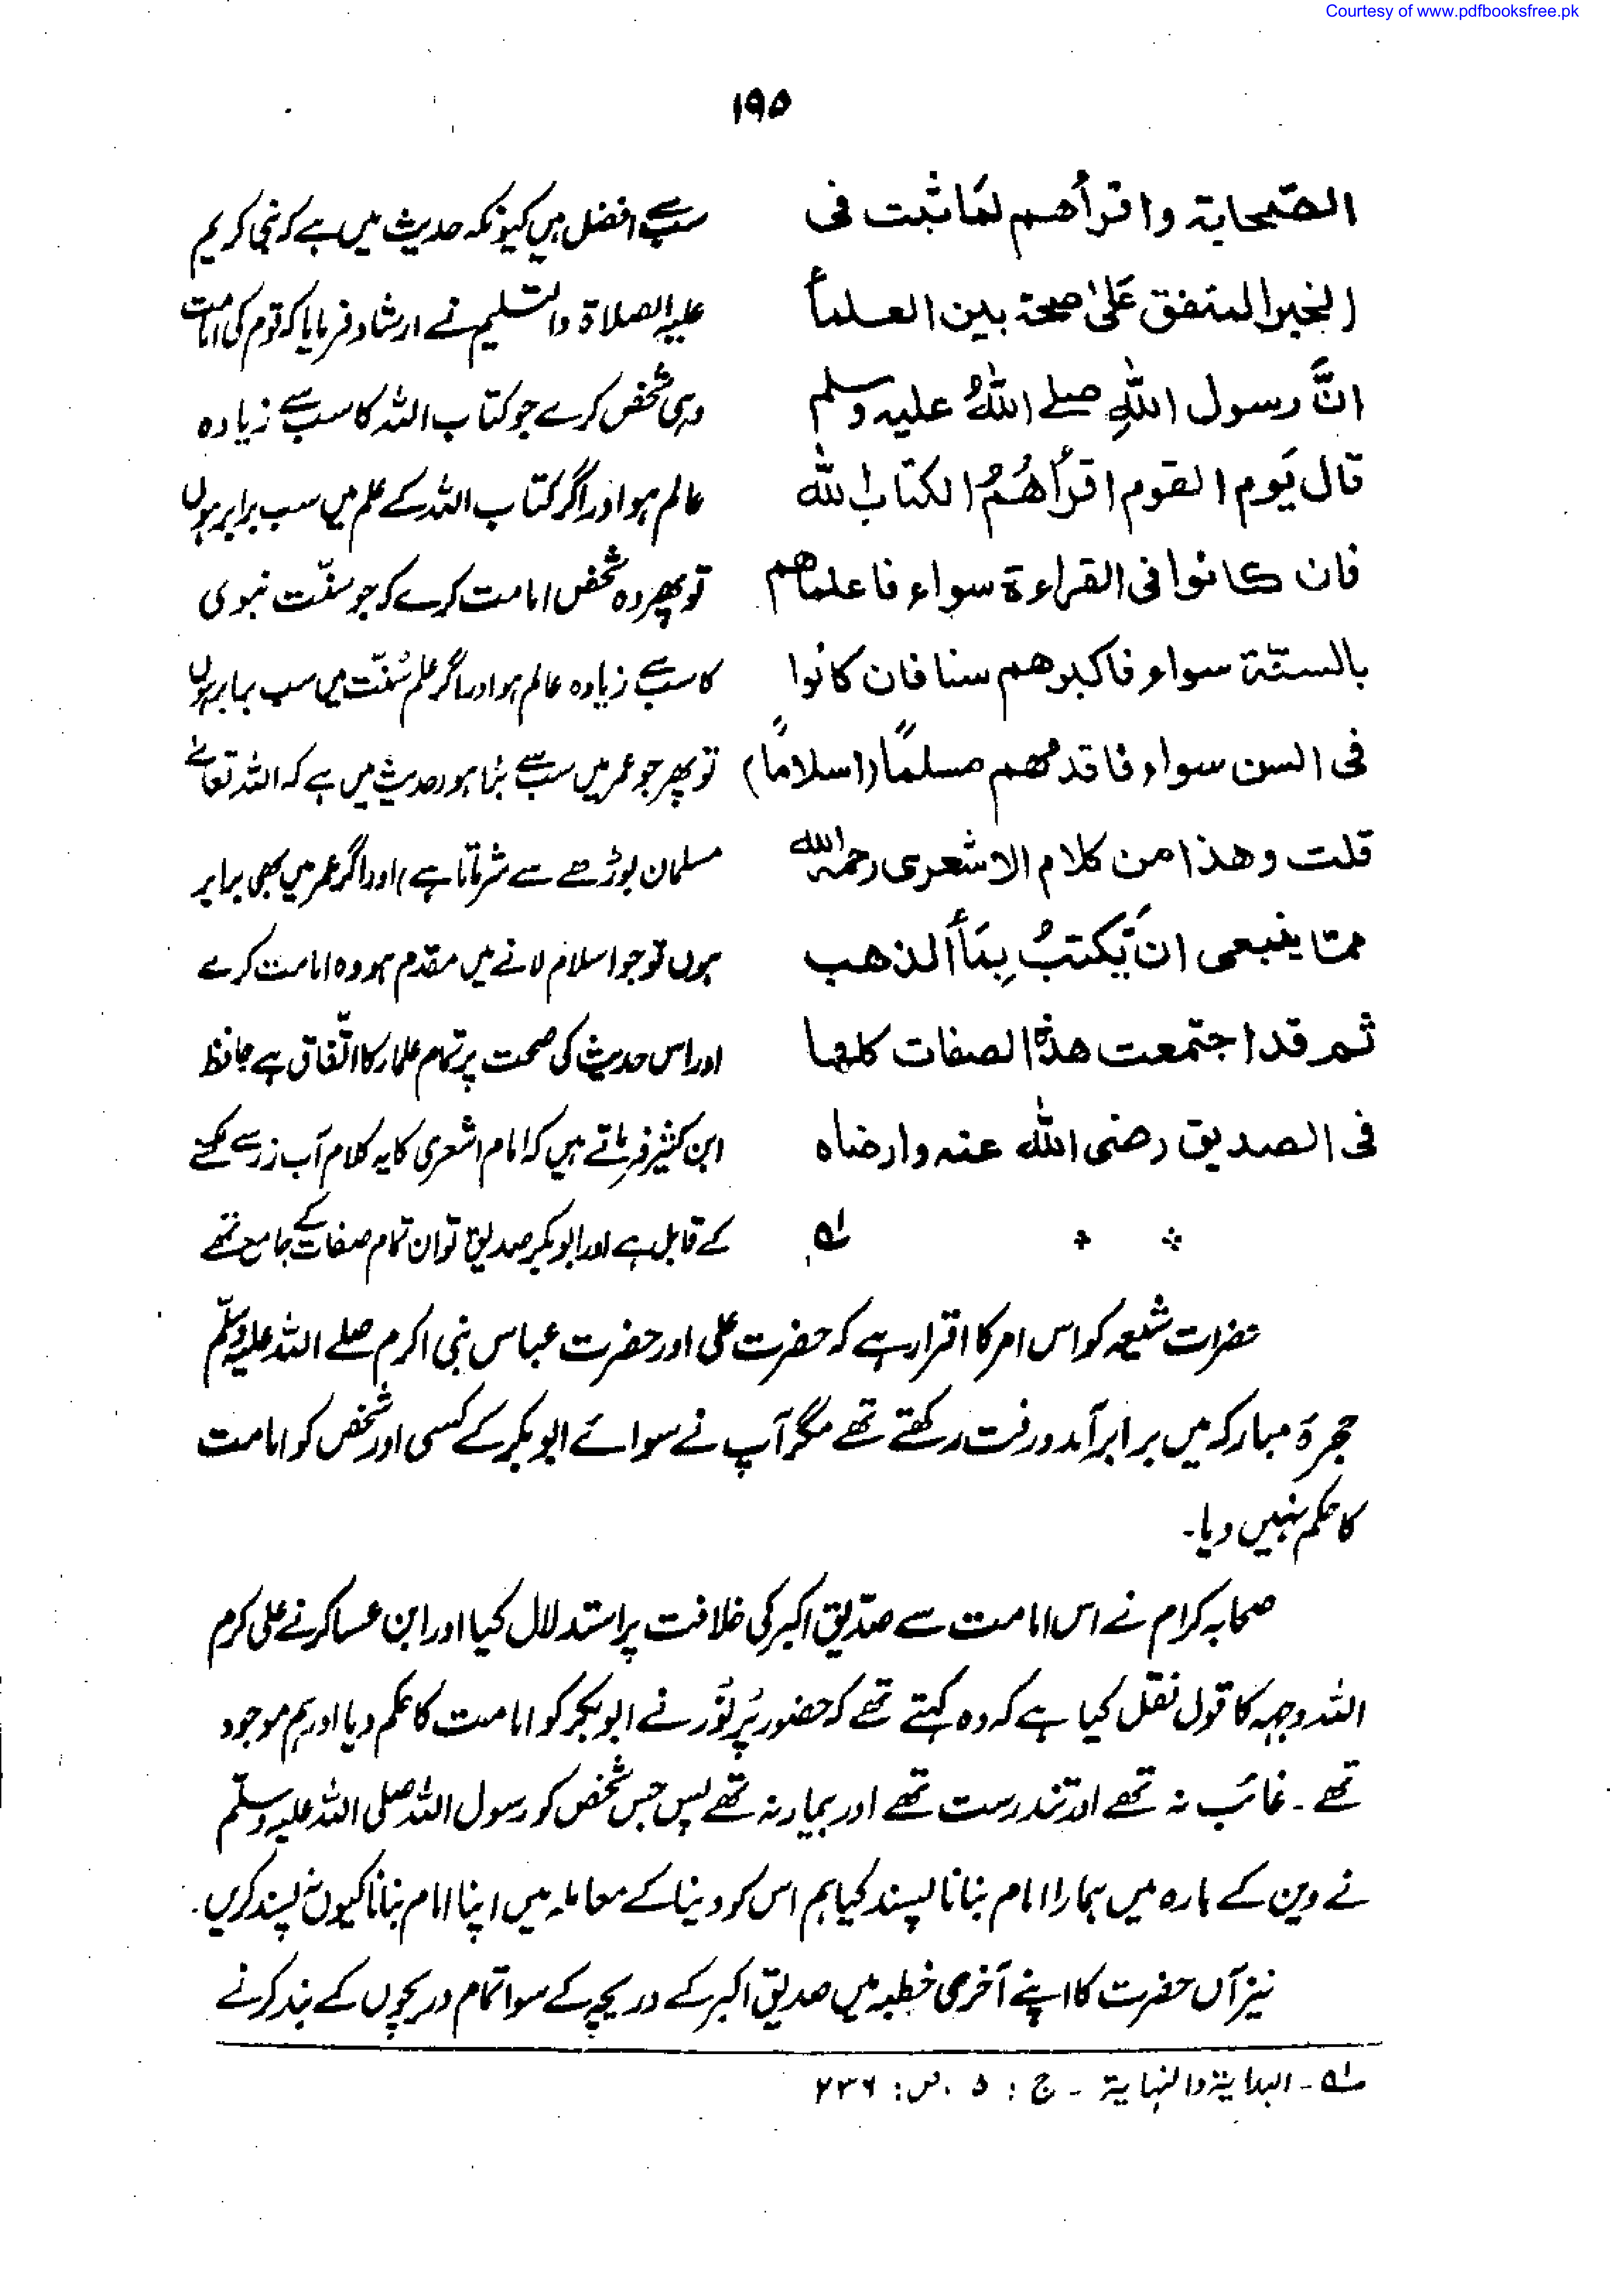 Courtesy of www.pdfbooksfree.pk
١٩۵
الصّحابة واقرأهم لمَا ثبت فی
الخبر المتفق عَلیٰ صحة بین العلمأ
انَّ رسول اللهِ صلے اللهُ علیه وسلم
قال یَوم القوم اقرأُهُمُ الکتاب لله
فان کانوا فی القراءة سواء فاعلمهم
بالسنّة سواء فاکبرهم سنا فان کانوا
فی السن سواء فاقدمهم مسلمًا (اسلامًا)
قلت وهذا من کلام الاشعری رحمه الله
ممّا ینبغی ان یّکتبُ بِمَأ الذهب
ثم قد اجتمعت هذه الصفات کلها
فی الصدیق رضی الله عنه وارضاه
؎۱
سب سے افضل ہیں کیونکہ حدیث میں ہے کہ نبی کریم
علیہ الصلاۃ والتسلیم نے ارشاد فرمایا کہ قوم کی امامت
وہی شخص کرے جو کتاب اللہ کا سب سے زیادہ
عالم ہو اور اگر کتاب اللہ کے علم میں سب برابر ہوں
تو پھر وہ شخص امامت کرے کہ جو سنّت نبوی
کا سب سے زیادہ عالم ہو اور اگر علم سُنّت میں سب برابر ہوں
تو پھر جو عمر میں سب سے بڑا ہو (حدیث میں ہے کہ اللہ تعالےٰ
مسلمان بوڑھے سے شرماتا ہے) اور اگر عمر میں بھی برابر
ہوں تو جو اسلام لانے میں مقدم ہو وہ امامت کرے
اور اس حدیث کی صحت پر تمام علمار کا اتّفاق ہے حافظ
ابن کثیر فرماتے ہیں کہ امام اشعری کا یہ کلام آب زر سے لکھنے
کے قابل ہے اور ابوبکر صدیق تو ان تمام صفات کے جامع تھے
حضرات شیعہ کو اس امر کا اقرار ہے کہ حضرت علی اور حضرت عباس نبی اکرم صلے اللہ علیہ وسلّم
حجرۂ مبارکہ میں برابر آمد و رفت رکھتے تھے مگر آپ نے سوائے ابوبکر کے کسی اور شخص کو امامت
کا حکم نہیں دیا۔
صحابہ کرام نے اس امامت سے صدّیق اکبر کی خلافت پر استدلال کیا اور ابن عساکر نے علی کرم
اللہ وجہہ کا قول نقل کیا ہے کہ وہ کہتے تھے کہ حضور پُر نُور نے ابوبکر کو امامت کا حکم دیا اور ہم موجود
تھے۔ غائب نہ تھے اور تندرست تھے اور بیمار نہ تھے پس جس شخص کو رسول اللہ صلی اللہ علیہ وسلّم
نے دین کے بارہ میں ہمارا امام بنانا پسند کیا ہم اس کو دنیا کے معاملہ میں اپنا امام بنانا کیوں نہ پسند کریں۔
نیز آں حضرت کا اپنے آخری خطبہ میں صدیق اکبر کے دریچہ کے سوا تمام دریچوں کے بند کرنے
؎۱۔ البدایة والنہایة ۔ ج : ۵ ، ص : ۲۳۶